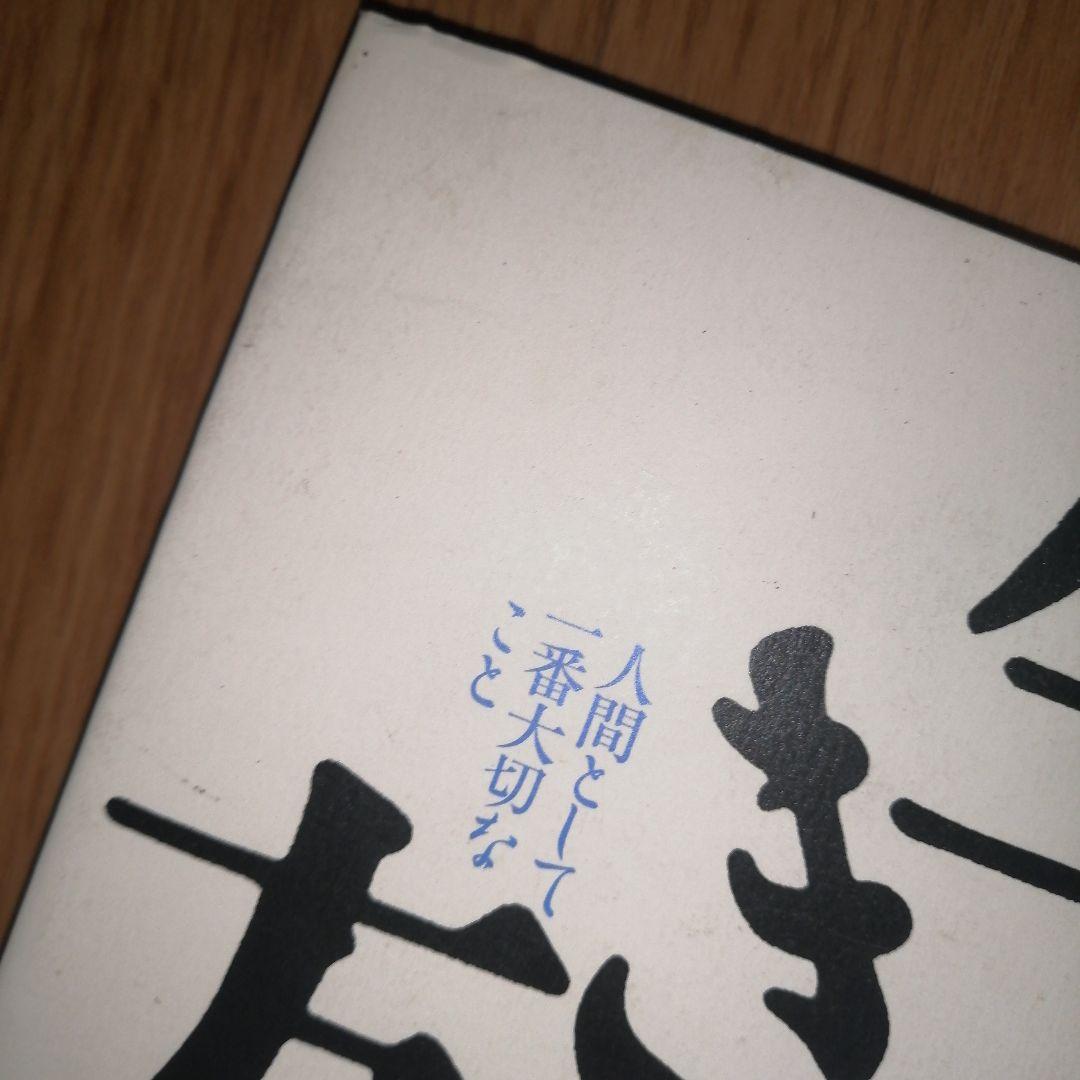 き
人間として
一番大切な
こと